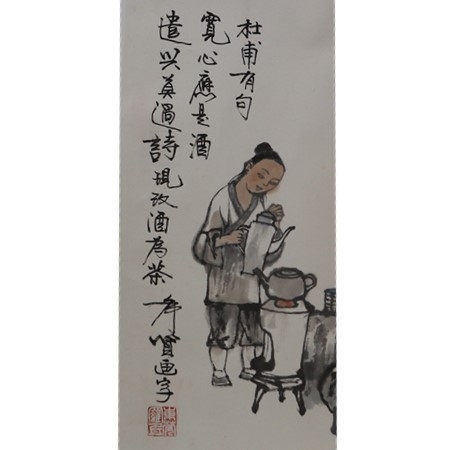 杜甫有句
寬心應是酒
遣興莫過詩現改酒為茶